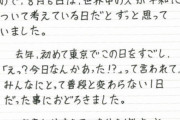 ので、8月6日は、世界中の人が平和に
ついて考えている日だとずっと思って
いました。
去年、初めて東京でこの日をすごし、
「えっ?今日なんかあった!?」って言われて、
みんなにとって普段と変わらない1日
だった事におどろきました。